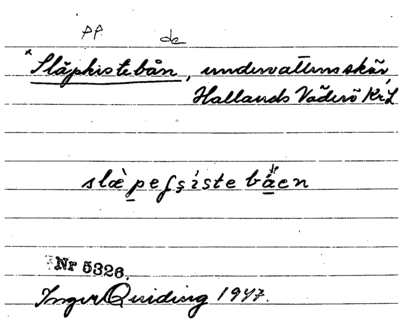 PP. de
*Släpkistebån, undervattensskär,
Hallands Väderö Kr.L
slæ̀pesʂiste båen
Nr 5326.
Inger Quiding 1947.